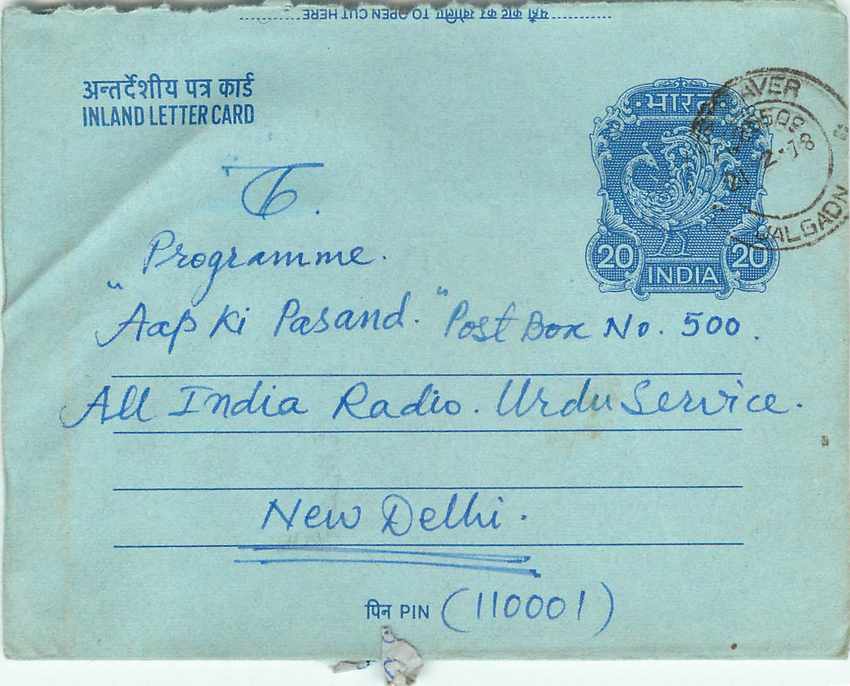 यहाँ काट कर खोलिए TO OPEN CUT HERE
अन्तर्देशीय पत्र कार्ड
INLAND LETTER CARD
भारत
20 INDIA 20
AVER
21 2.78
JALGAON
To.
Programme.
"Aap Ki Pasand." Post Box No. 500.
All India Radio. Urdu Service.
New Delhi.
पिन PIN (110001)